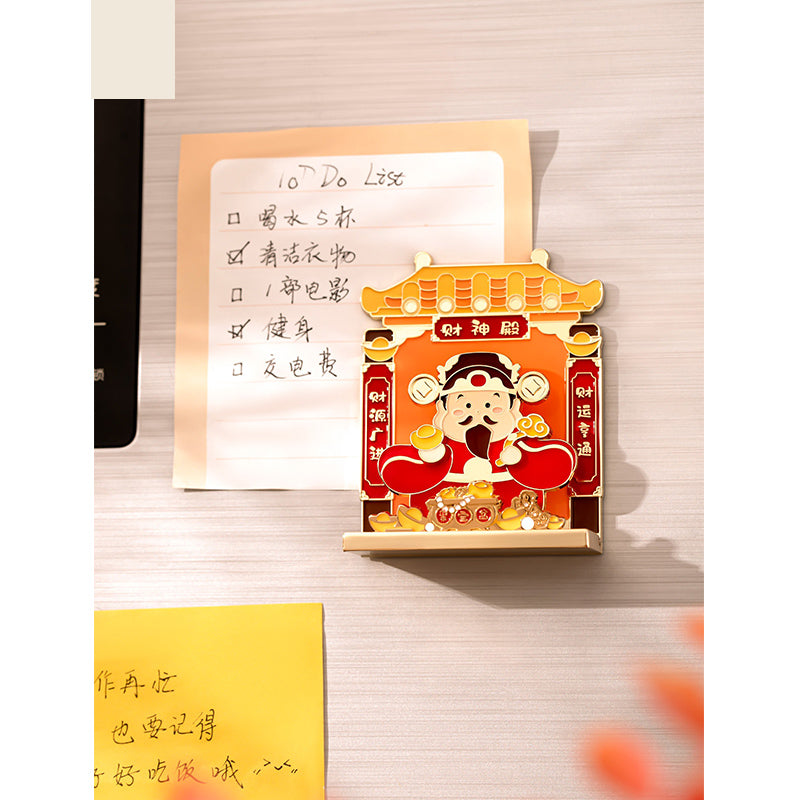 ToT Do List
喝水5杯
清洁衣物
1部电影
健身
交电费
财神殿
财源广进
财运亨通
作再忙
也要记得
好好吃饭哦